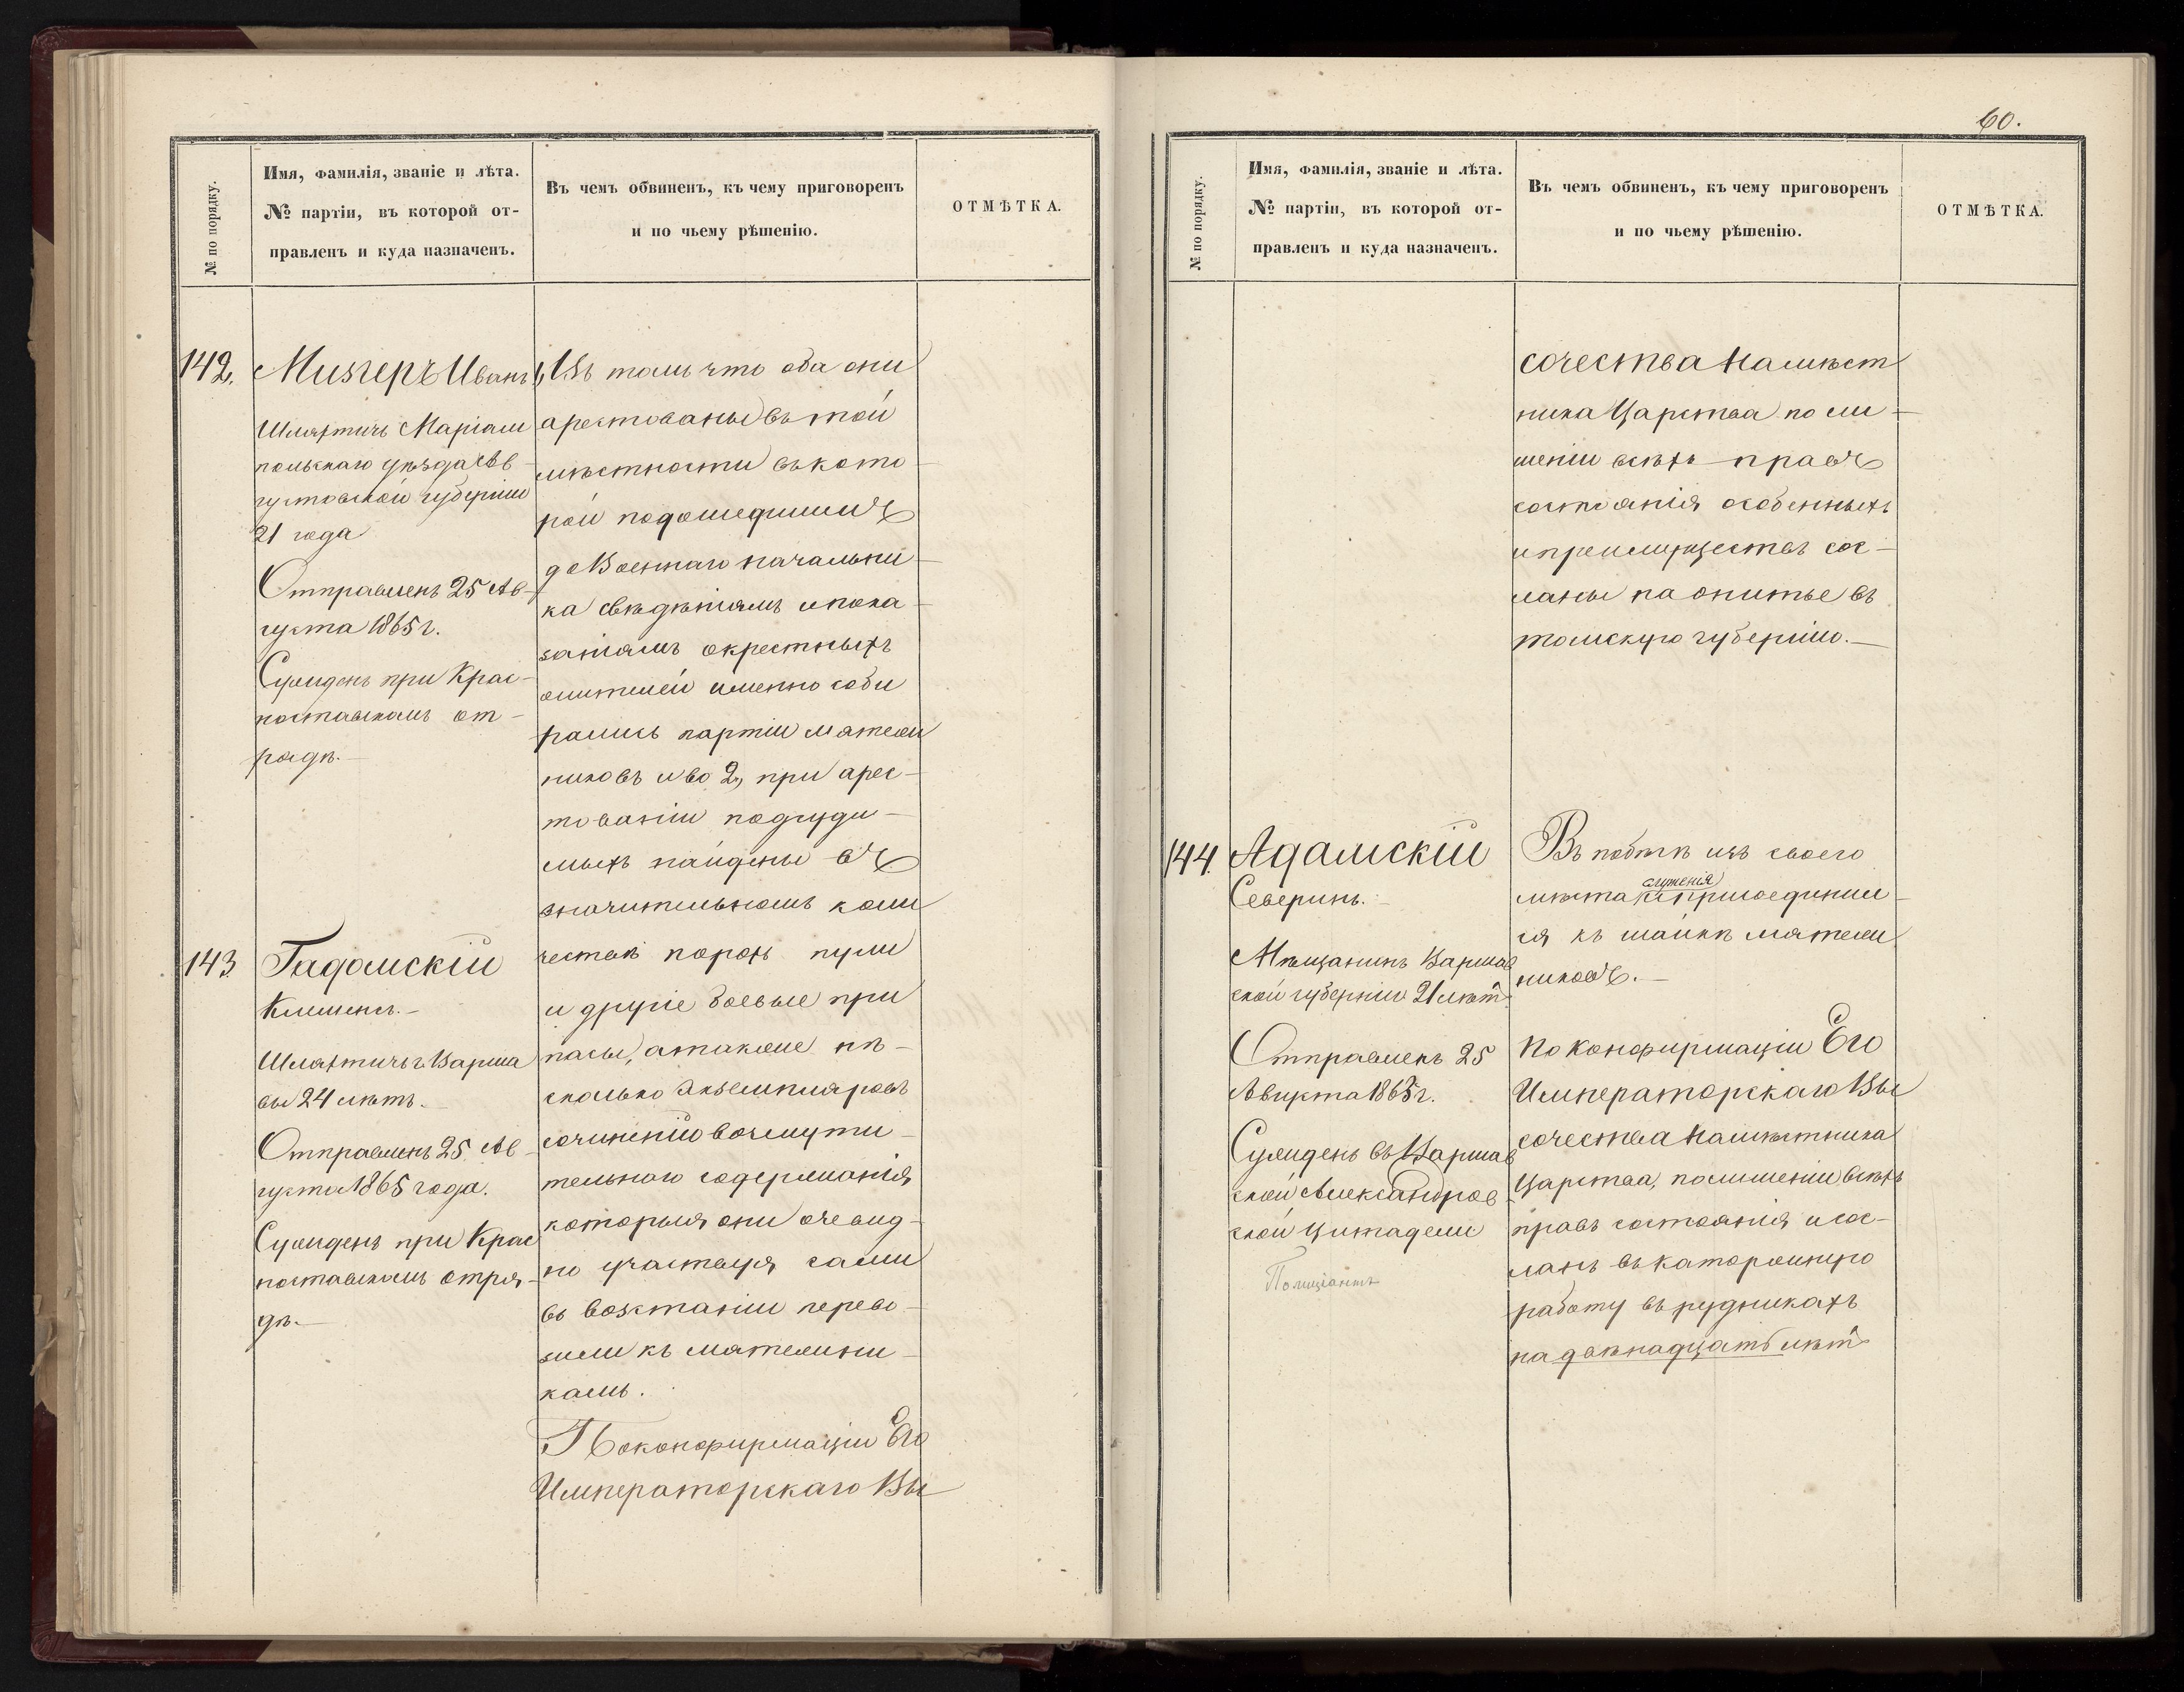 № по порядку.
Имя, фамилія, званіе и лѣта.
№ партіи, въ которой от-
правленъ и куда назначенъ.
Въ чемъ обвиненъ, къ чему приговоренъ
и по чьему рѣшенію.
ОТМѢТКА.
142.
Мизгеръ Иванъ
Шляхтичъ Маріам
польскаго уѣзда Ав-
густовской губерніи
21 года
Отправленъ 25 Ав-
густа 1865 г.
Сужденъ при Крас-
ноставскомъ от-
рядѣ.—
143
Гадомскій
Клеменсъ.—
Шляхтичъ г. Варша
вы 24 лѣтъ.
Отправленъ 25 Ав-
густа 1865 года.
Сужденъ при Крас
ноставскомъ отря-
дѣ.—
1, Въ томъ что оба они
арестованы въ той
мѣстности въ кото-
рой по дошедшимъ
до Военнаго начальни-
ка свѣдѣніямъ и пока-
заніямъ окрестныхъ
жителей именно соби
рались партіи мятеж
никовъ и во 2, при арес-
тованіи подсуди-
мыхъ найдены въ
значительномъ коли
чествѣ порохъ пули
и другіе боевые при
пасы, а также нѣ-
сколько экземпляровъ
сочиненій возмути-
тельнаго содержанія
которыя они очевид-
но участвуя сами
въ возстаніи перево-
зили къ мятежни-
камъ.
По конфирмаціи Его
Императорскаго Вы
60.
№ по порядку.
Имя, фамилія, званіе и лѣта.
№ партіи, въ которой от-
правленъ и куда назначенъ.
Въ чемъ обвиненъ, къ чему приговоренъ
и по чьему рѣшенію.
ОТМѢТКА.
сочества Намѣст
ника Царства по ли-
шеніи всѣхъ правъ
состоянія особенныхъ
и преимуществъ сос-
ланы на житье въ
томскую губернію.—
144.
Адамскій
Северинъ.—
Мѣщанинъ Варшав
ской губерніи 21 лѣтъ
Отправленъ 25
Августа 1865 г.
Сужденъ въ Варшав
ской Александров
ской Цитадели
Полиціантъ
Въ побѣгѣ изъ своего
служенія
мѣста и присоединил-
ся къ шайкѣ мятеж
никовъ.—
По конфирмаціи Его
Императорскаго Вы
сочества Намѣстника
Царства, по лишеніи всѣхъ
правъ состоянія и сос-
ланъ въ каторжную
работу въ рудникахъ
на двѣнадцать лѣтъ